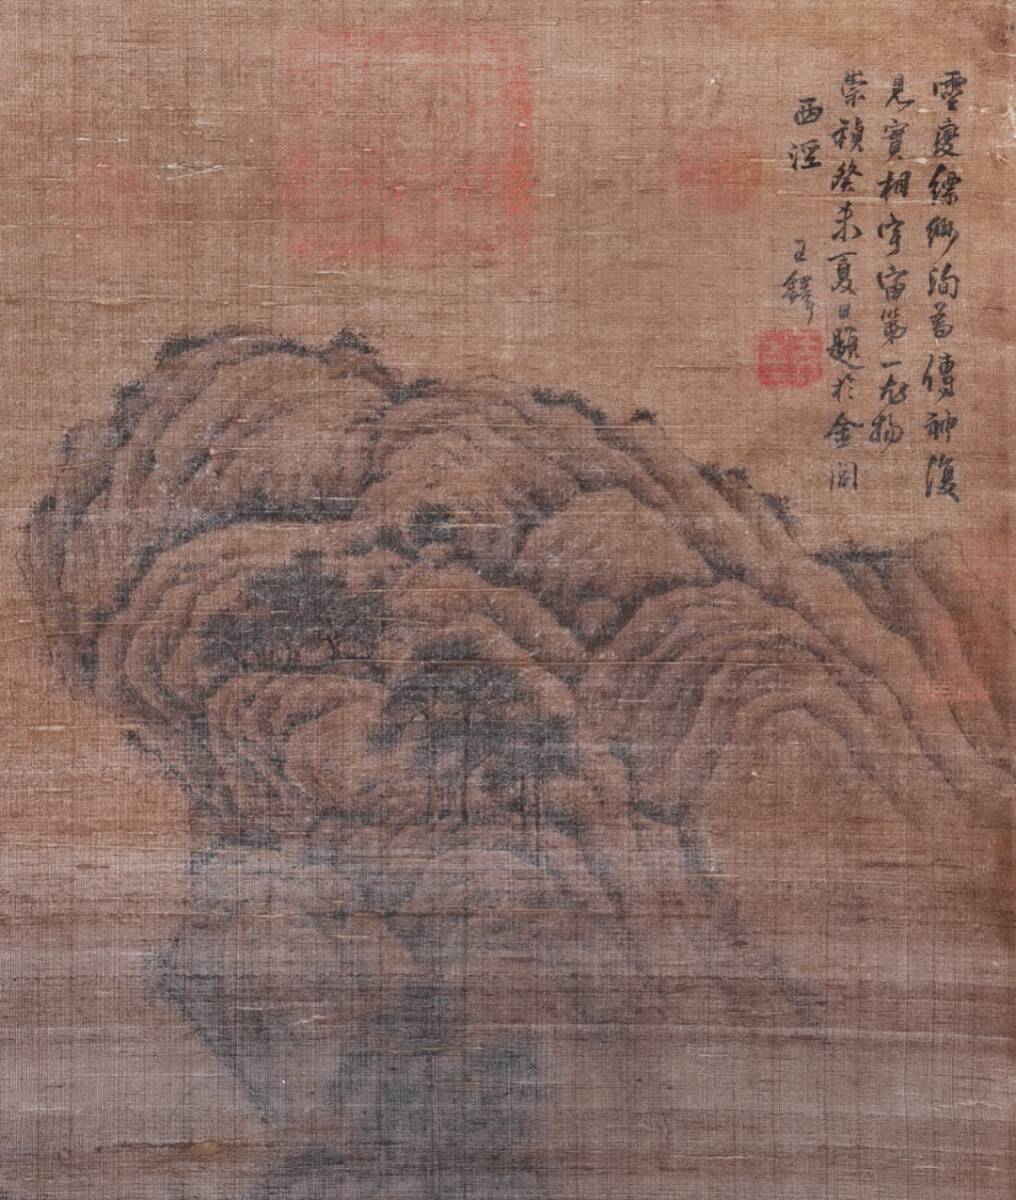 靈變縹緲洵傳神復
見實相宇宙第一尤物
崇禎癸未夏日題於金閶
西 王鐸